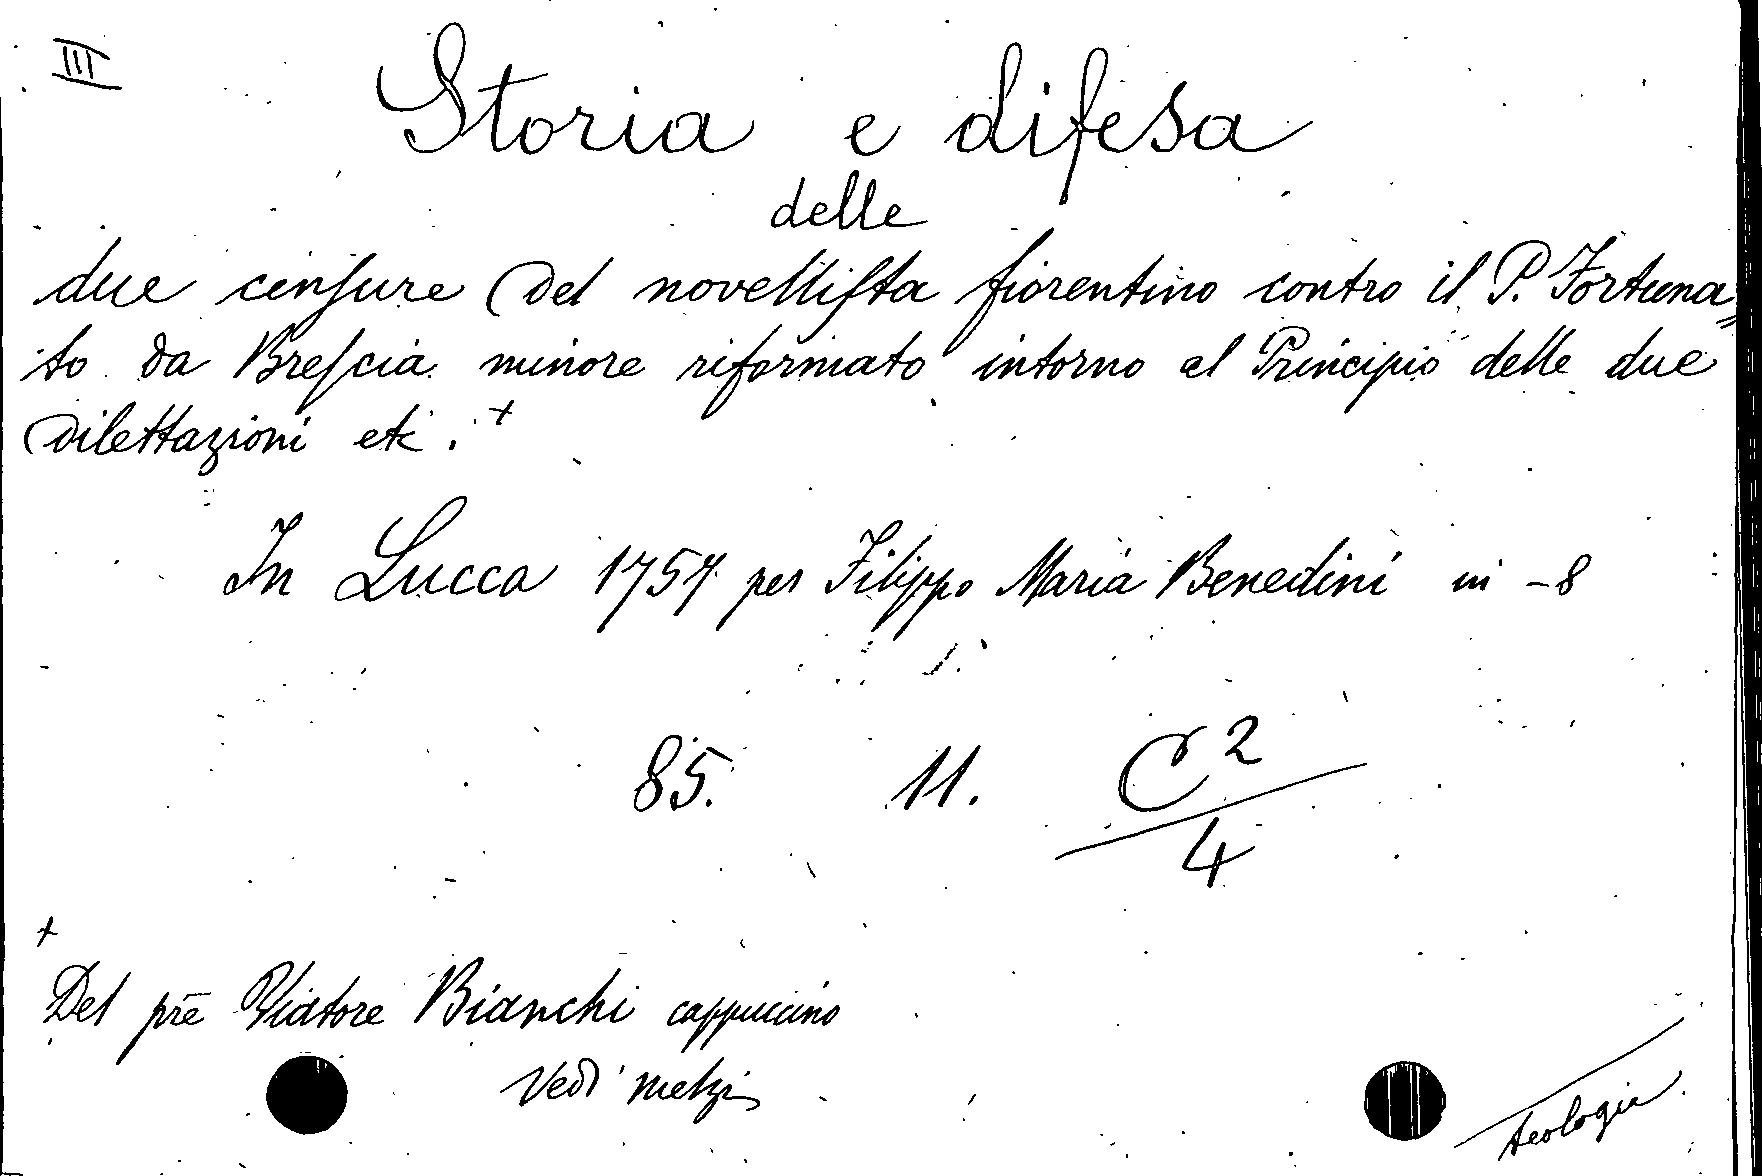 III
Storia e difesa
delle
due cenſure del novelliſta fiorentino contro il P. Fortuna=
to da Breſcia minore riformato intorno al Principio delle due
dilettazioni etc. +
In Lucca 1757 per Filippo Maria Benedini in -8
85. 11. C2/4
+
Del prē Viatore Bianchi cappuccino
Vedi Melzi
Teologia